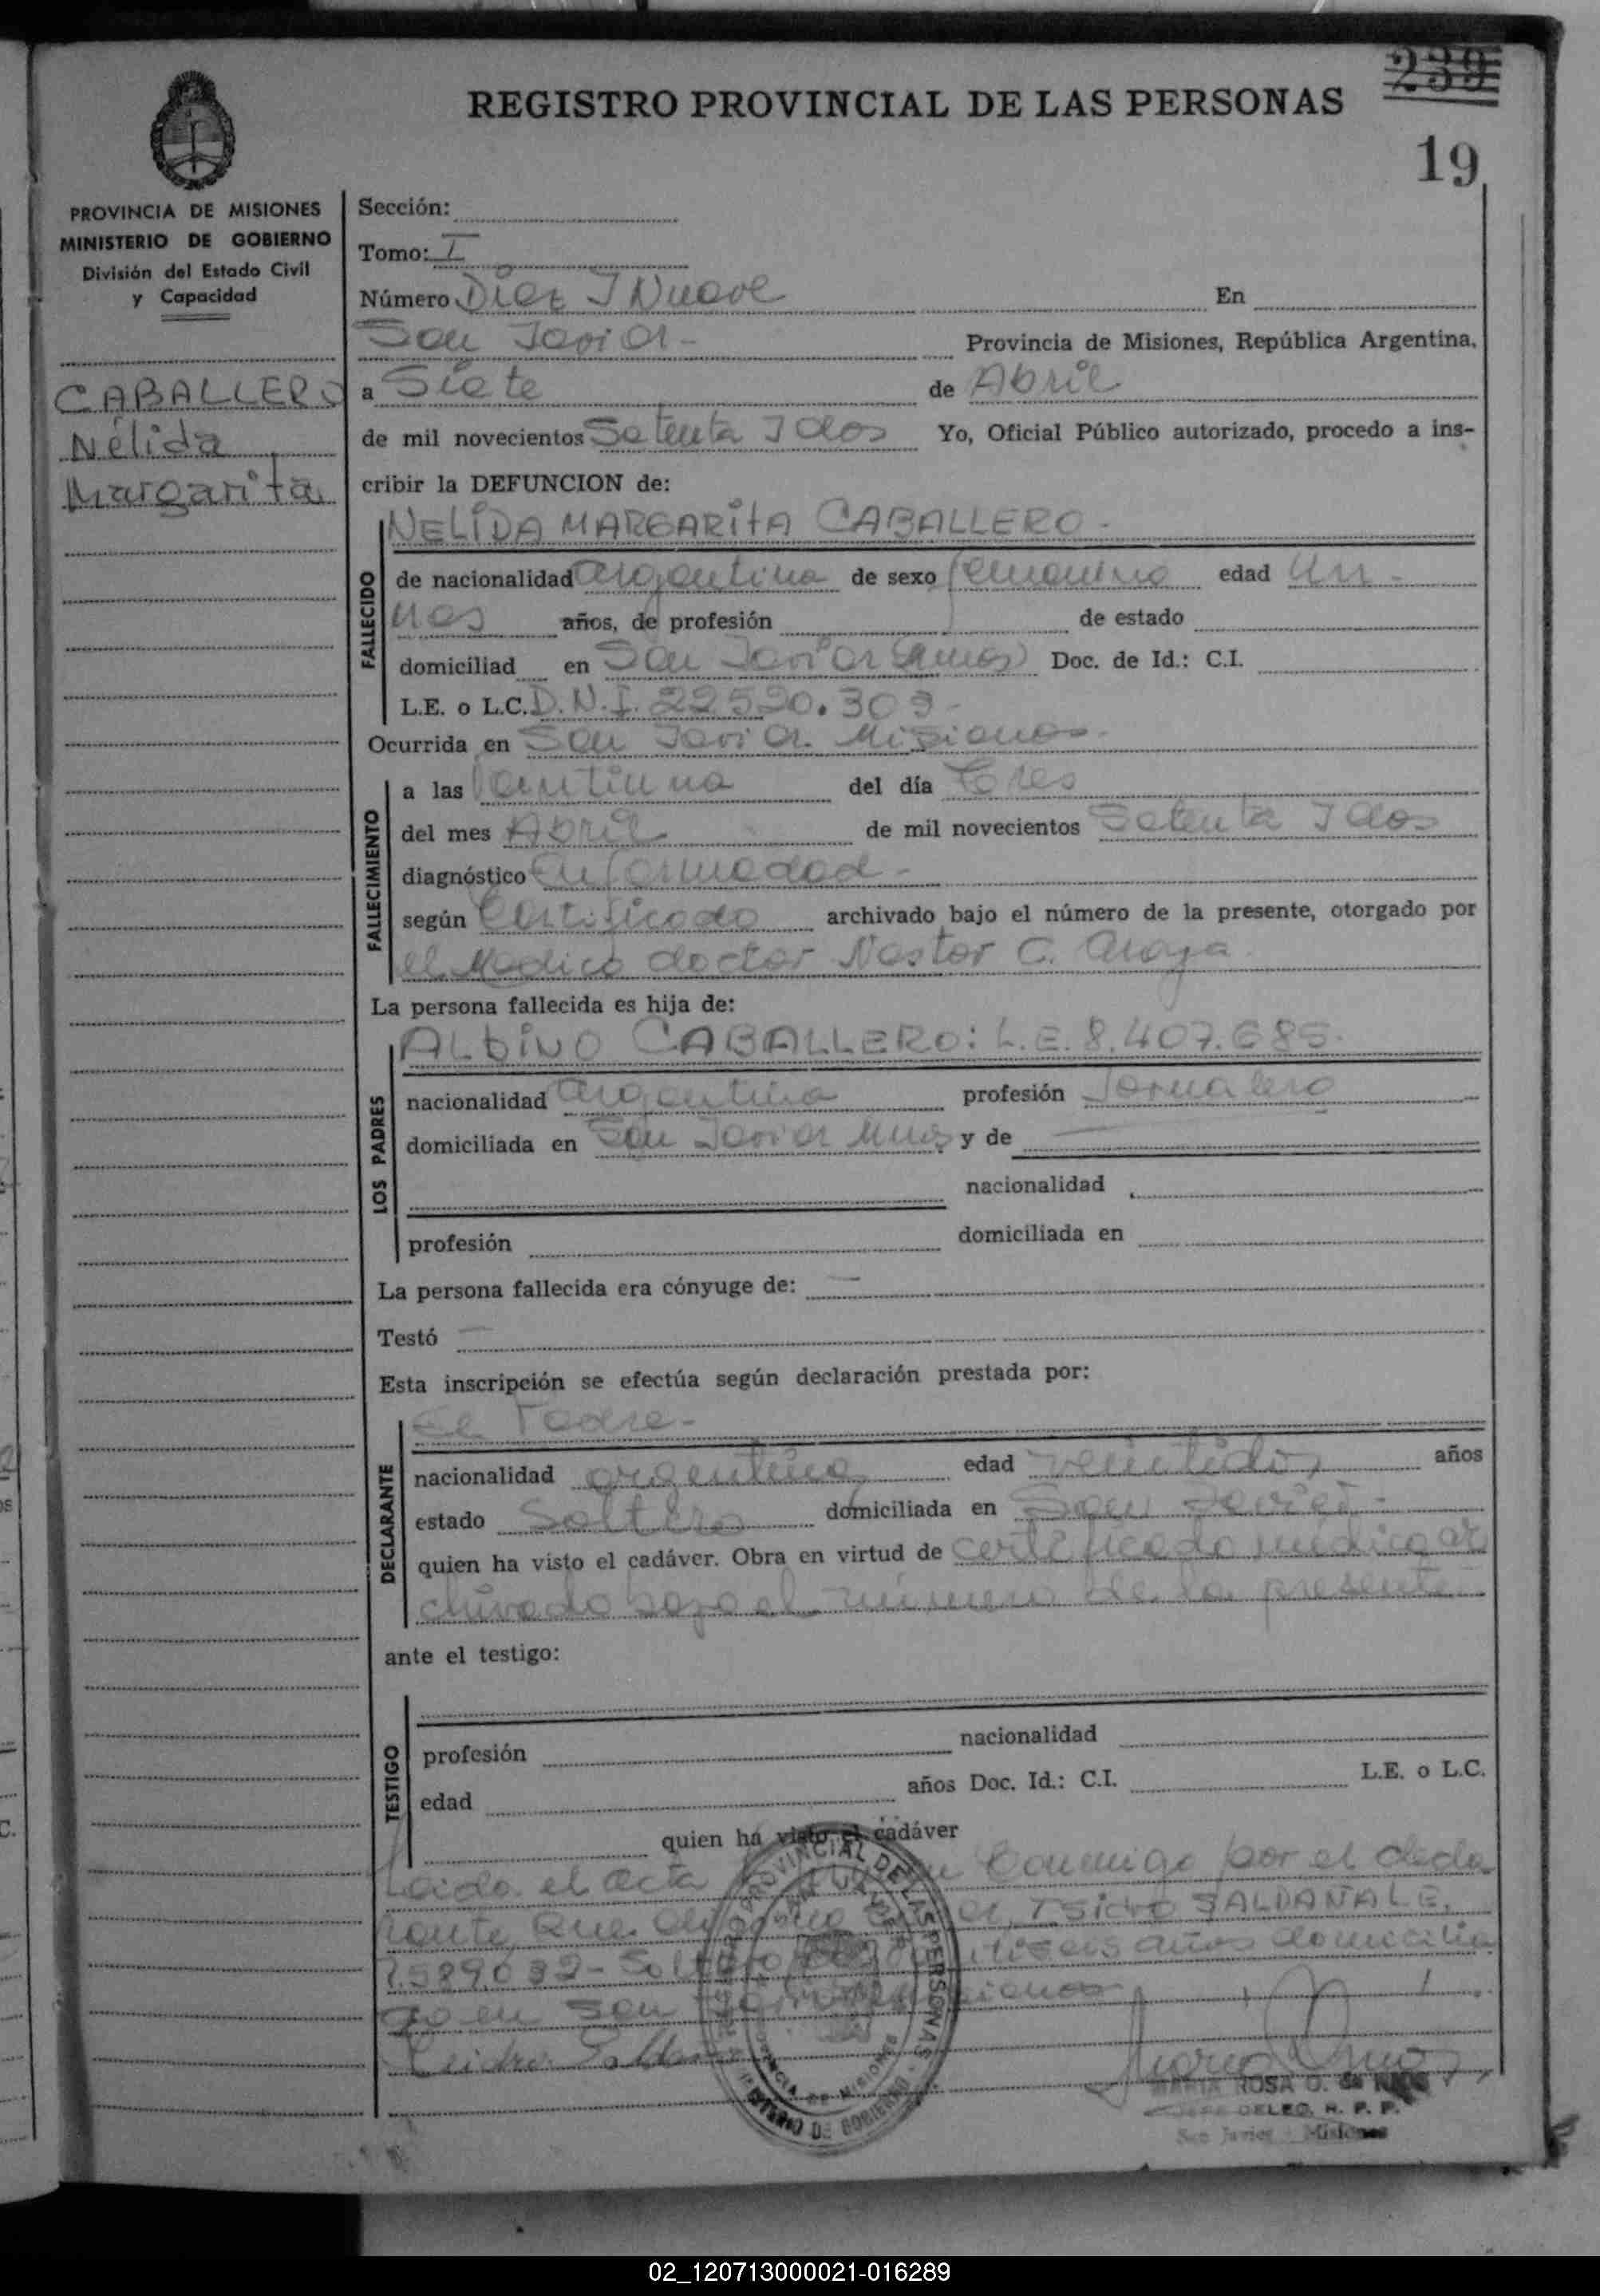 239
REGISTRO PROVINCIAL DE LAS PERSONAS
19
PROVINCIA DE MISIONES
MINISTERIO DE GOBIERNO
División del Estado Civil
y Capacidad
CABALLERO
Nélida
Margarita
Sección:
Tomo: I
Número Diez y Nueve En
San Javier - Provincia de Misiones, República Argentina,
a Siete de Abril
de mil novecientos Setenta y dos Yo, Oficial Público autorizado, procedo a ins-
cribir la DEFUNCION de:
FALLECIDO
NELIDA MARGARITA CABALLERO -
de nacionalidad argentina de sexo femenino edad Un -
mes años, de profesión de estado
domiciliad en San Javier Doc. de Id.: C.I.
L.E. o L.C. D.N.I. 22520.309 -
Ocurrida en San Javier Misiones -
FALLECIMIENTO
a las veintiuna del día Tres
del mes Abril de mil novecientos Setenta y dos
diagnóstico Enfermedad -
según Certificado archivado bajo el número de la presente, otorgado por
el Medico doctor Nestor C. Araya.
La persona fallecida es hija de:
LOS PADRES
ALBINO CABALLERO: L.E. 8.407.685.
nacionalidad argentina profesión Jornalero
domiciliada en San Javier Mnes y de —
nacionalidad
profesión domiciliada en
La persona fallecida era cónyuge de: —
Testó —
Esta inscripción se efectúa según declaración prestada por:
DECLARANTE
El Padre -
nacionalidad argentino edad veintidos años
estado Soltero domiciliada en San Javier -
quien ha visto el cadáver. Obra en virtud de certificado médico ar
chivado bajo el número de la presente
ante el testigo:
TESTIGO
profesión nacionalidad
edad años Doc. Id.: C.I. L.E. o L.C.
quien ha visto el cadáver
Leida el acta Conmigo por el decla
rante, Que Isidro SALDAÑA L.E.
7.589.032 - Soltero años domicilia
do en San Javier Misiones
Isidro Saldaña
PROVINCIAL DE LAS PERSONAS
PROVINCIA DE MISIONES
MINISTERIO DE GOBIERNO
MARIA ROSA O. de
JEFE DELEG. R. P. P.
San Javier - Misiones
02_120713000021-016289